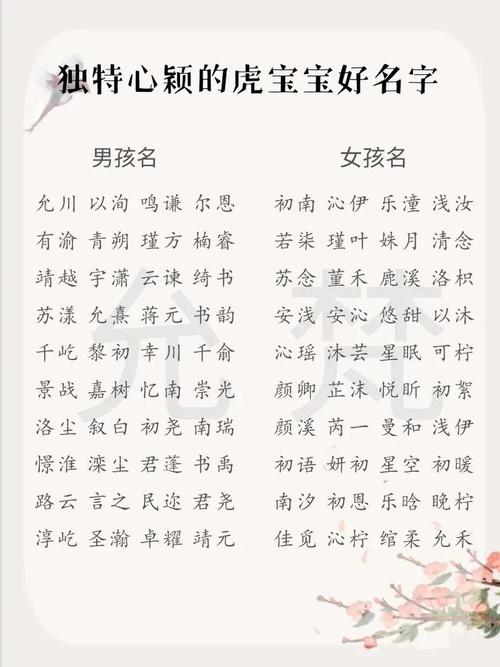 独特心颖的虎宝宝好名字
男孩名
允川 以洵 鸣谦 尔恩
有渝 青朔 瑾方 楠睿
靖越 宇潇 云谏 绮书
苏漾 允熹 蒋元 书韵
千屹 黎初 幸川 千俞
景战 嘉树 忆南 崇光
洛尘 叙白 初尧 南瑞
憬淮 滦尘 君蓬 书禹
路云 言之 民迩 君尧
淳屹 圣瀚 卓耀 靖元
女孩名
初南 沁伊 乐潼 浅汝
若柒 瑾叶 姝月 清念
苏念 堇禾 鹿溪 洛枳
安浅 安沁 悠甜 以沐
沁瑶 沐芸 星眠 可柠
颜卿 芷沫 悦昕 初絮
颜溪 芮一 曼和 浅伊
初语 妍初 星空 初暖
南汐 初恩 乐晗 晚柠
佳觅 沁柠 绾柔 允禾
允梵